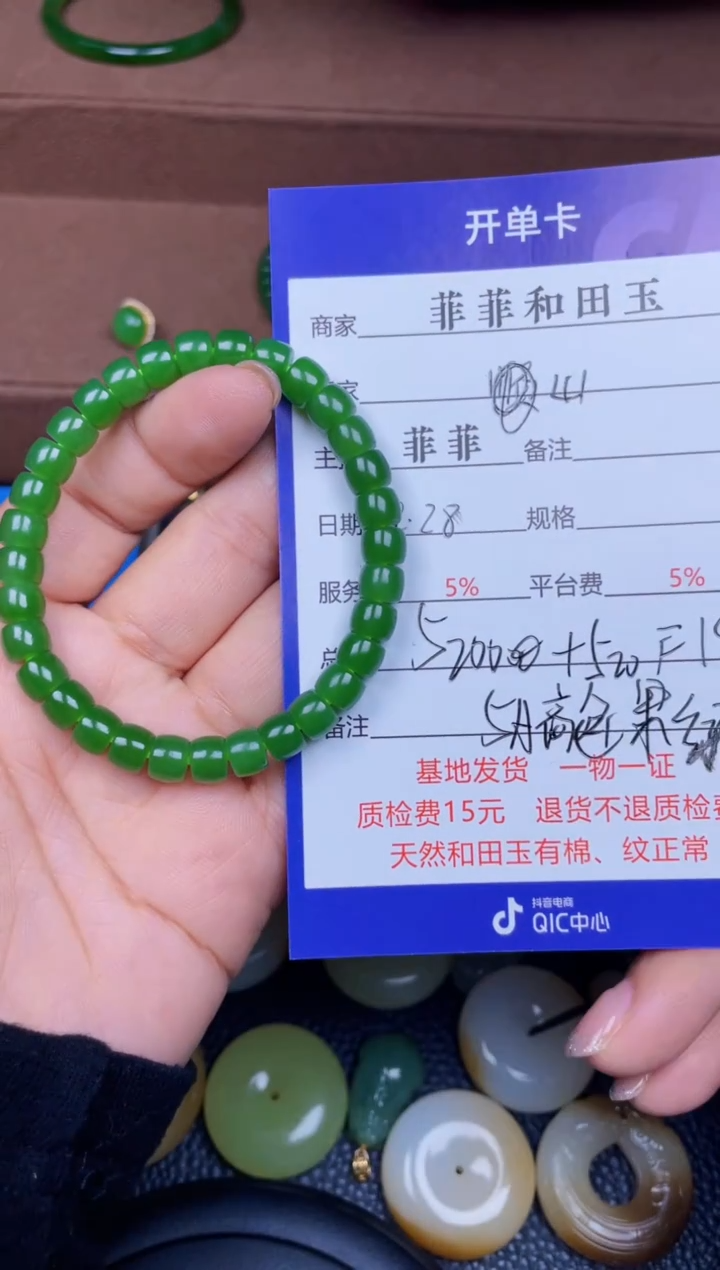 开单卡
商家 菲菲和田玉
家 山
主 菲菲 备注
日期 .28 规格
服务 5% 平台费 5%
总 52000+520=19
备注 高色果
基地发货 一物一证
质检费15元 退货不退质检费
天然和田玉有棉、纹正常
抖音电商
QIC中心